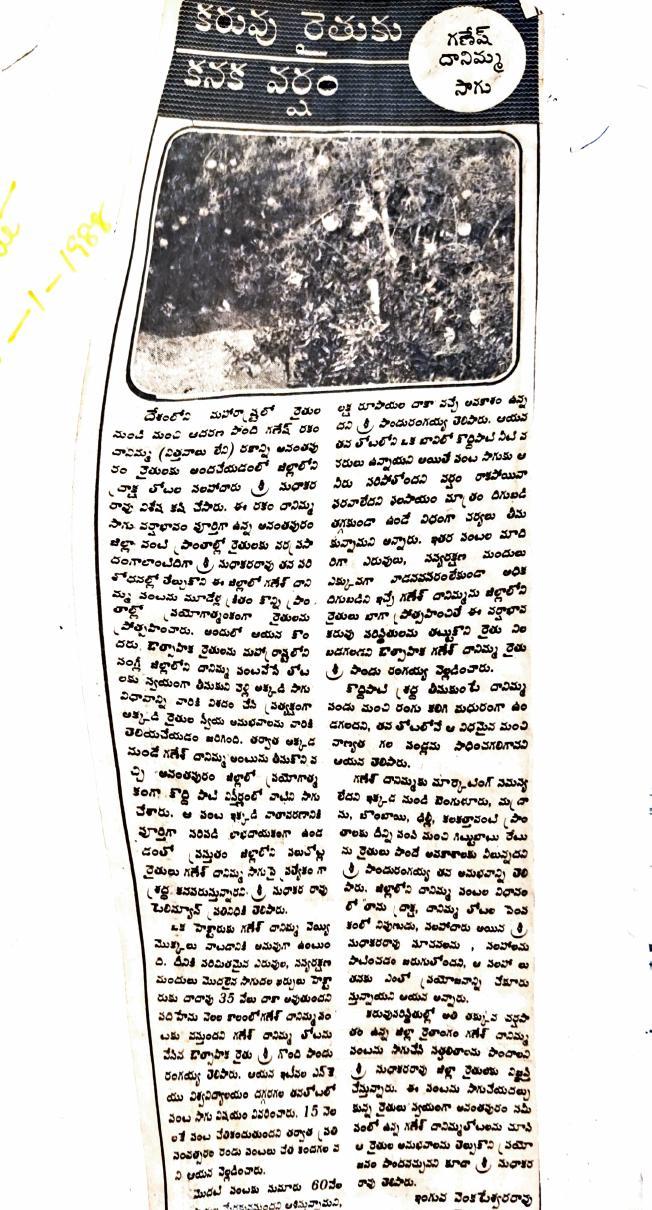 కరువు రైతుకు
కనక వర్షం
గణేష్
దానిమ్మ
సాగు
-1-1988
దేశంలోని మహారాష్ట్రలో రైతుల
నుండి మంచి ఆదరణ పొంది గణేష్ రకం
దానిమ్మ (విత్తనాలు లేని) రకాన్ని అనంతపు
రం రైతులకు అందచేయడంలో జిల్లాలోని
ద్రాక్ష తోటల సలహాదారు శ్రీ సుధాకర
రావు విశేష కృషి చేసారు. ఈ రకం దానిమ్మ
సాగు వర్షాభావం పూర్తిగా ఉన్న అనంతపురం
జిల్లా వంటి ప్రాంతాల్లో రైతులకు వర ప్రసా
దంలాంటిదిగా శ్రీ సుధాకరరావు తన పరి
శోధనల్లో తేల్చుకొని ఈ జిల్లాలో గణేష్ దాని
మ్మ పంటను మూడేళ్ల క్రితం కొన్ని ప్రాం
తాల్లో ప్రయోగాత్మకంగా రైతులను
ప్రోత్సహించారు. అందులో ఆయన కొం
దరు ఔత్సాహిక రైతులను మహారాష్ట్రలోని
సంగ్లీ జిల్లాలోని దానిమ్మ పంటవేసే తోట
లకు స్వయంగా తీసుకుని వెళ్లి అక్కడి సాగు
విధానాన్ని వారికి విశదం చేసి ప్రత్యక్షంగా
అక్కడి రైతుల స్వీయ అనుభవాలను వారికి
తెలియచేయడం జరిగింది. తర్వాత అక్కడ
నుండే గణేష్ దానిమ్మ అంటును తీసుకొని వ
చ్చి అనంతపురం జిల్లాలో ప్రయోగాత్మ
కంగా కొద్ది పాటి విస్తీర్ణంలో వాటిని సాగు
చేశారు. ఆ పంట ఇక్కడి వాతావరణానికి
పూర్తిగా సరిపడి లాభదాయకంగా ఉండ
డంతో ప్రస్తుతం జిల్లాలోని పలుచోట్ల
రైతులు గణేష్ దానిమ్మ సాగుపై ప్రత్యేకం గా
శ్రద్ధ కనపరుస్తున్నారని శ్రీ సుధాకర రావు
ప్రతినిధికి తెలిపారు.
ఒక హెక్టారుకు గణేష్ దానిమ్మ వెయ్యి
మొక్కలు నాటడానికి అనువుగా ఉంటుం
ది. దీనికి పరిమితమైన ఎరువుల, సస్యరక్షణ
మందులు మొదలైన సాగుదల ఖర్చులు హెక్టా
రుకు దాదాపు 35 వేలు దాకా అవుతుందని
పదిహేను నెలల కాలంలోగణేష్ దానిమ్మపం
టకు వస్తుందని గణేష్ దానిమ్మ తోటను
వేసిన ఔత్సాహిక రైతు శ్రీ గొంది పాండు
రంగయ్య తెలిపారు. ఆయన ఇటీవల ఎస్ కె
యు విశ్వవిద్యాలయం దగ్గరగల తనతోటలో
పంట సాగు విషయం వివరించారు. 15 నెల
లకే పంట చేతికందుతుందని తర్వాత ప్రతి
సంవత్సరం రెండు పంటలు చేతి కందగల వ
ని ఆయన వెల్లడించారు.
మొదటి పంటకు సుమారు 60వేల
లక్ష రూపాయల దాకా వచ్చే అవకాశం ఉన్న
దని శ్రీ పాండురంగయ్య తెలిపారు. ఆయన
తన తోటలోని ఒక బావిలో కొద్దిపాటి నీటి వ
నరులు ఉన్నాయని అయితే పంట సాగుకు ఆ
నీరు సరిపోతోందని వర్షం రాకపోయినా
ఫరవాలేదని ఫలసాయం మాత్రం దిగుబడి
తగ్గకుండా ఉండే విధంగా చర్యలు తీసు
కున్నామని అన్నారు. ఇతర పంటల మాది
రిగా ఎరువులు, సస్యరక్షణ మందులు
ఎక్కువగా వాడనవసరంలేకుండా అధిక
దిగుబడిని ఇచ్చే గణేష్ దానిమ్మను జిల్లాలోని
రైతులు బాగా ప్రోత్సహించితే ఈ వర్షాభావ
కరువు పరిస్థితులను తట్టుకొని రైతు నిల
బడగలడని ఔత్సాహిక గణేష్ దానిమ్మ రైతు
శ్రీ పాండు రంగయ్య వెల్లడించారు.
కొద్దిపాటి శ్రద్ధ తీసుకుంటే దానిమ్మ
పండు మంచి రంగు కలిగి మధురంగా ఉం
డగలదని, తన తోటలోనే ఆ విధమైన మంచి
నాణ్యత గల పండ్లను సాధించగలిగానని
ఆయన తెలిపారు.
గణేష్ దానిమ్మకు మార్కెటింగ్ సమస్య
లేదని ఇక్కడ నుండి బెంగుళూరు, మద్రా
సు, బొంబాయి, ఢిల్లీ, కలకత్తావంటి ప్రాం
తాలకు దీన్ని పంపి మంచి గిట్టుబాటు రేటు
ను రైతులు పొందే అవకాశాలకు వీలున్నదని
శ్రీ పాండురంగయ్య తన అనుభవాన్ని తెలి
పారు. జిల్లాలోని దానిమ్మ పంటల విధానం
లో తాను ద్రాక్ష, దానిమ్మ తోటల పెంప
కంలో నిపుణుడు, సలహాదారు అయిన శ్రీ
సుధాకరరావు సూచనలను, సలహాలను
పాటించడం జరుగుతోందని, ఆ సలహా లు
తనకు ఎంతో ప్రయోజనాన్ని చేకూరు
స్తున్నాయని ఆయన అన్నారు.
కరువుపరిస్థితుల్లో అతి తక్కువ వర్షపా
తం ఉన్న జిల్లా రైతాంగం గణేష్ దానిమ్మ
పంటను సాగుచేసి సత్ఫలితాలను పొందాలని
శ్రీ సుధాకరరావు జిల్లా రైతులకు విజ్ఞప్తి
చేస్తున్నారు. ఈ పంటను సాగుచేయదల్చు
కున్న రైతులు స్వయంగా అనంతపురం సమీ
పంలో ఉన్న గణేష్ దానిమ్మతోటలను చూసి
ఆ రైతుల అనుభవాలను తెల్చుకొని ప్రయో
జనం పొందవచ్చునని కూడా శ్రీ సుధాకర
రావు తెలిపారు.
ఇంగువ వెంకటేశ్వరరావు